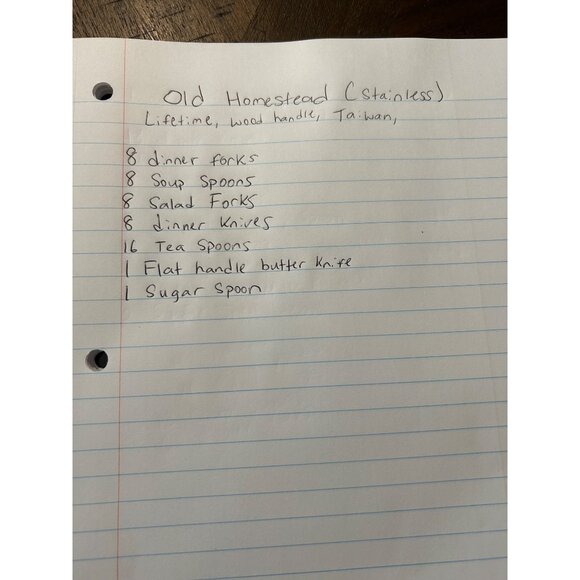 Old Homestead (Stainless)
Lifetime, wood handle, Taiwan,
8 dinner forks
8 Soup Spoons
8 Salad Forks
8 dinner Knives
16 Tea Spoons
1 Flat handle butter Knife
1 Sugar Spoon